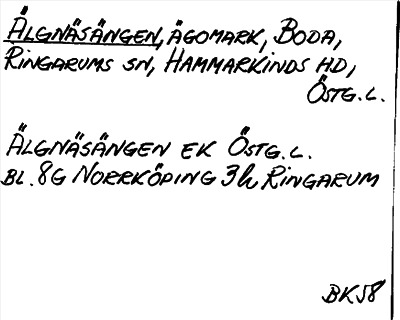 ÄLGNÄSÄNGEN, ÄGOMARK, BODA,
RINGARUMS SN, HAMMARKINDS HD,
ÖSTG.L.
ÄLGNÄSÄNGEN EK ÖSTG.L.
BL. 8G NORRKÖPING 3h RINGARUM
BK58